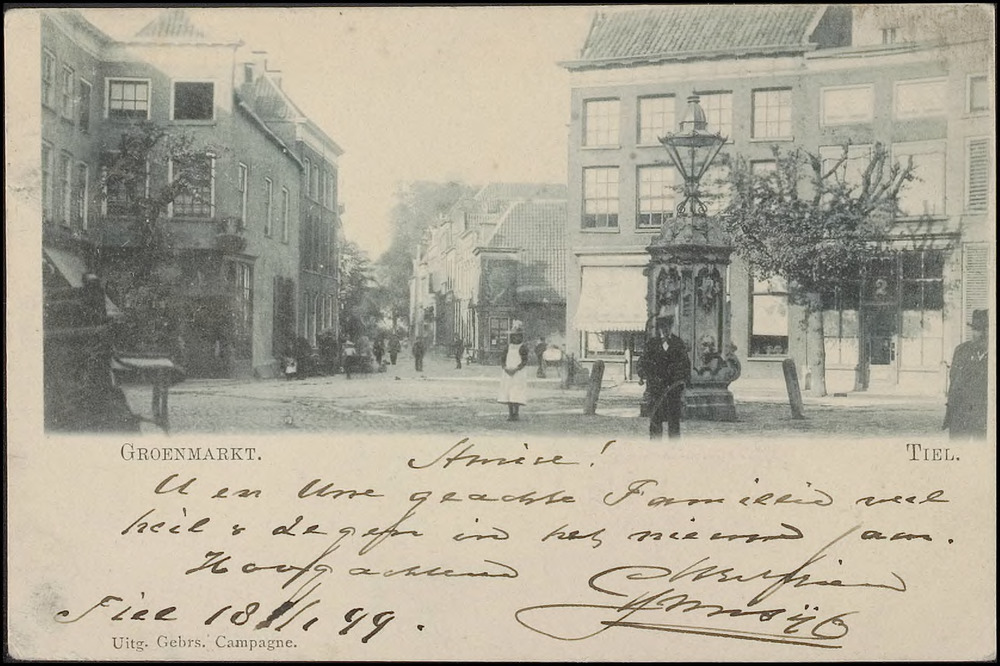 2
GROENMARKT.
TIEL.
Amice!
U en Uwe geachte Familie veel
heil & zegen in het nieuwe jaar.
Hoogachtend
Tiel 18 1/1 99.
Uitg. Gebrs. Campagne.